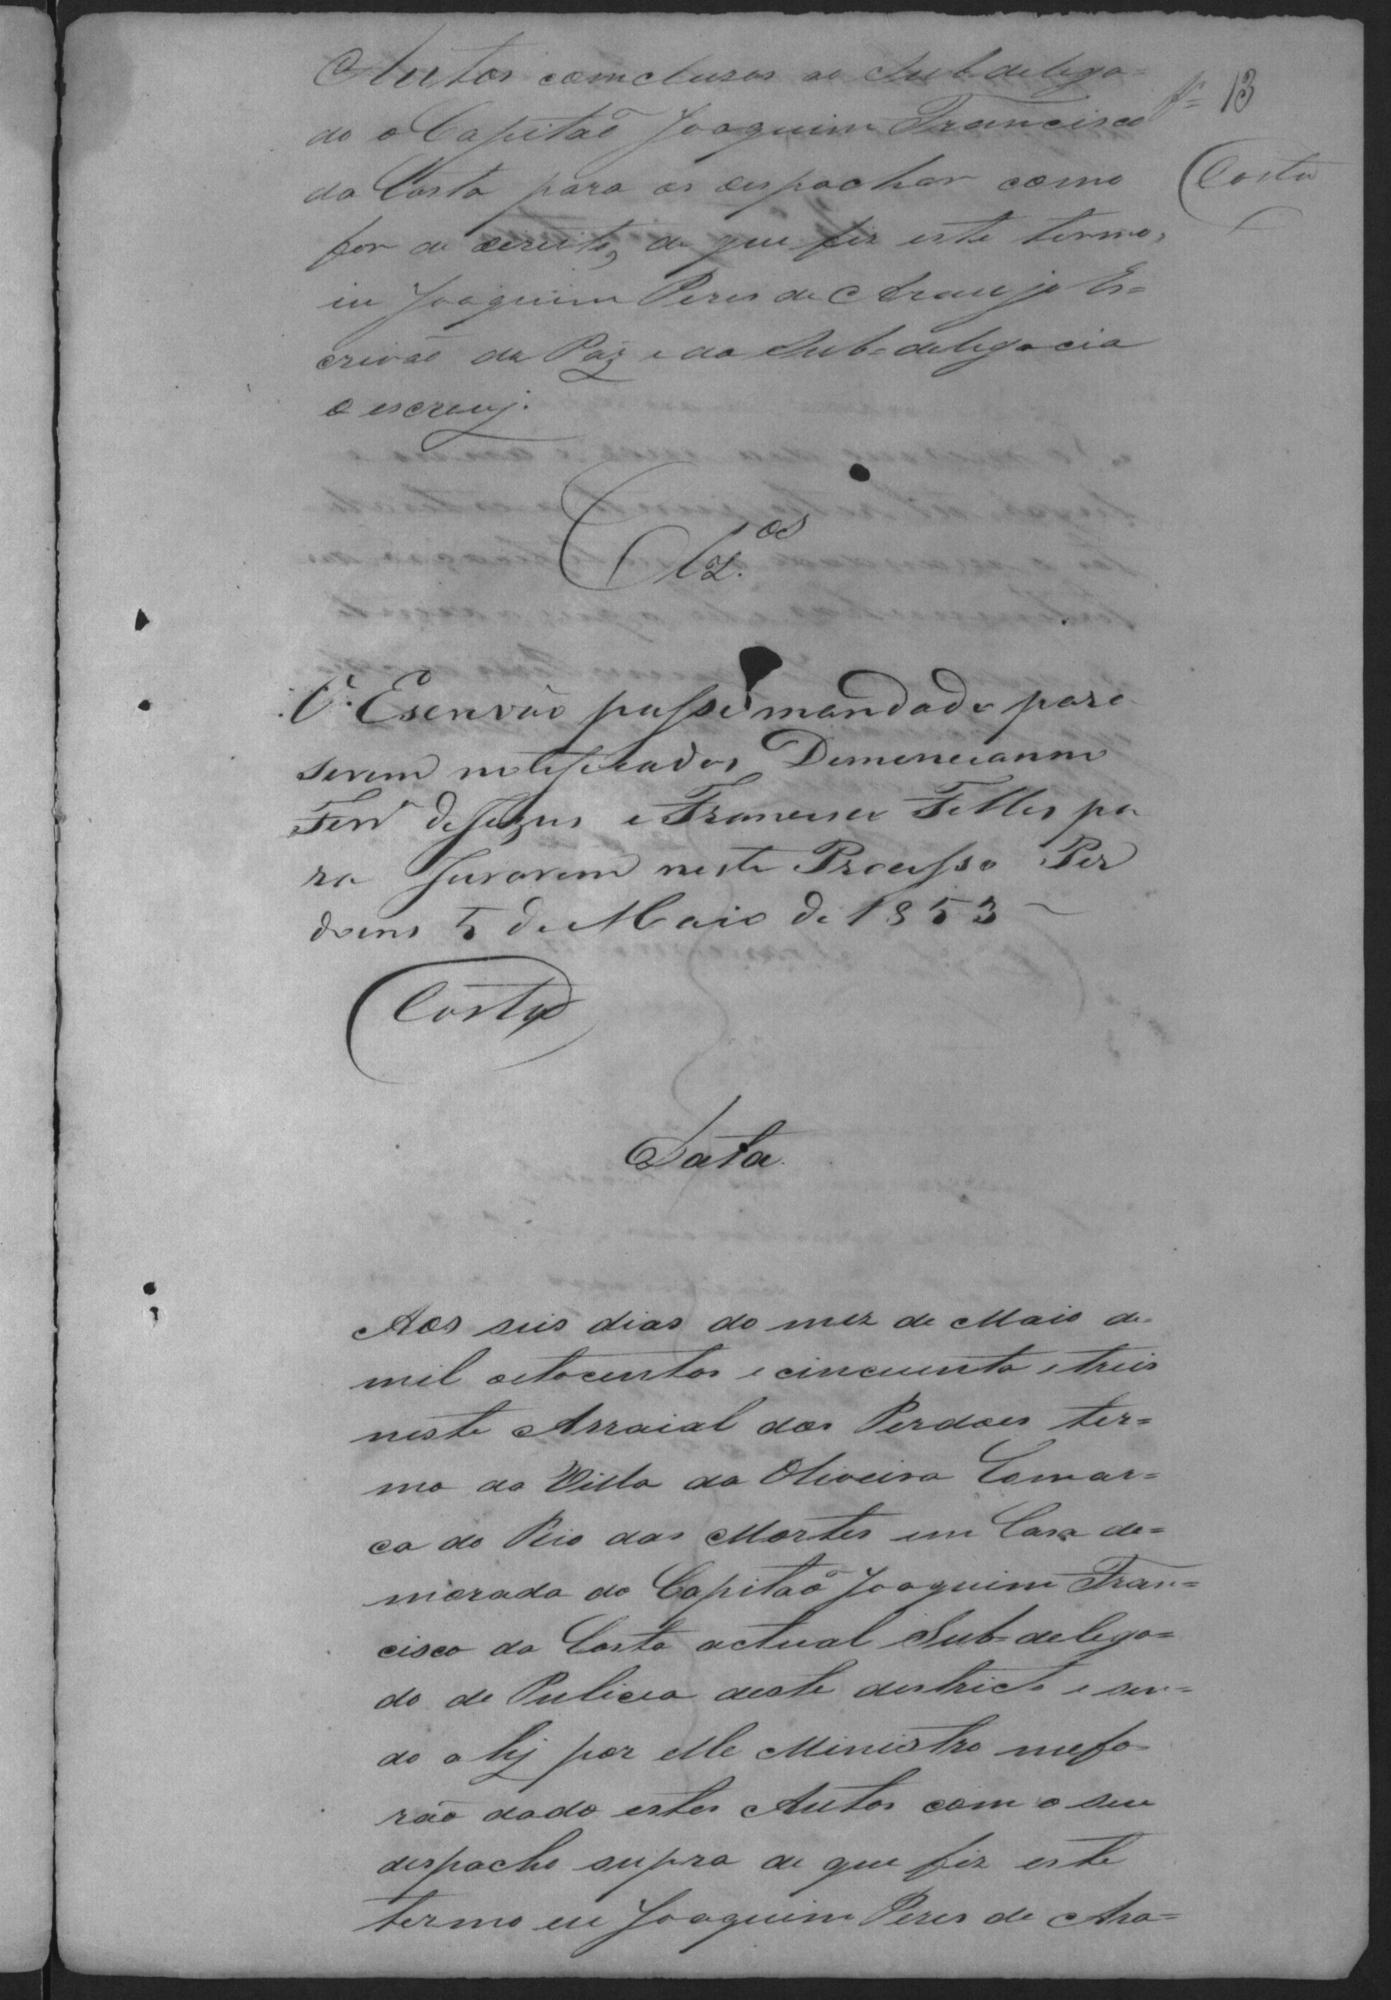 Autos comclusos ao Subdelega=
do o Capitaõ Joaquim Francisco
da Costa para os despachar como
for de dereito, de que fiz este termo,
eu Joaquim Peres de Araujo Es=
crivaõ de Paz e da Sub=delegacia
o escrevj.
fs= 13
Costa
Clz.os
O Escrivaõ passe mandado para
serem notificados
Ferr.ª de Jezus e Francisco Telles pa
ra Jurarem neste Processo Per
doens 5 de Maio de 1853
Costa
Data
Aos seis dias do mez de Maio de
mil oitocentos e cincuenta e treis
neste Arraial dos Perdoes ter=
mo da Villa da Oliveira Comar=
ca do Rio das Mortes em Casa de=
morada do Capitaõ Joaquim Fran=
cisco da Costa actual Sub=delega=
do de Pulicia deste destricto e sen=
do ahj por elle Ministro mefo=
rão dado estes Autos com o seu
despacho supra de que fiz este
termo eu Joaquim Peres de Ara=